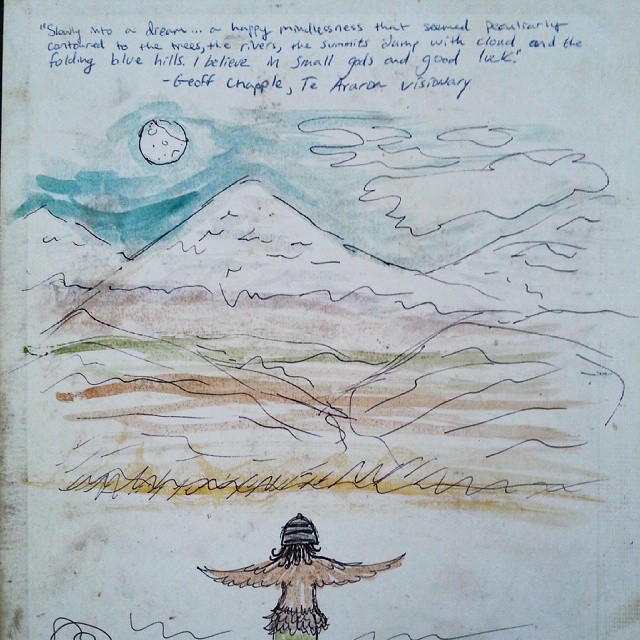 "Slowly into a dream... a happy mindlessness that seemed peculiarly
contoured to the trees, the rivers, the summits damp with cloud and the
folding blue hills. I believe in small gods and good luck."
-Geoff Chapple, Te Araroa visionary